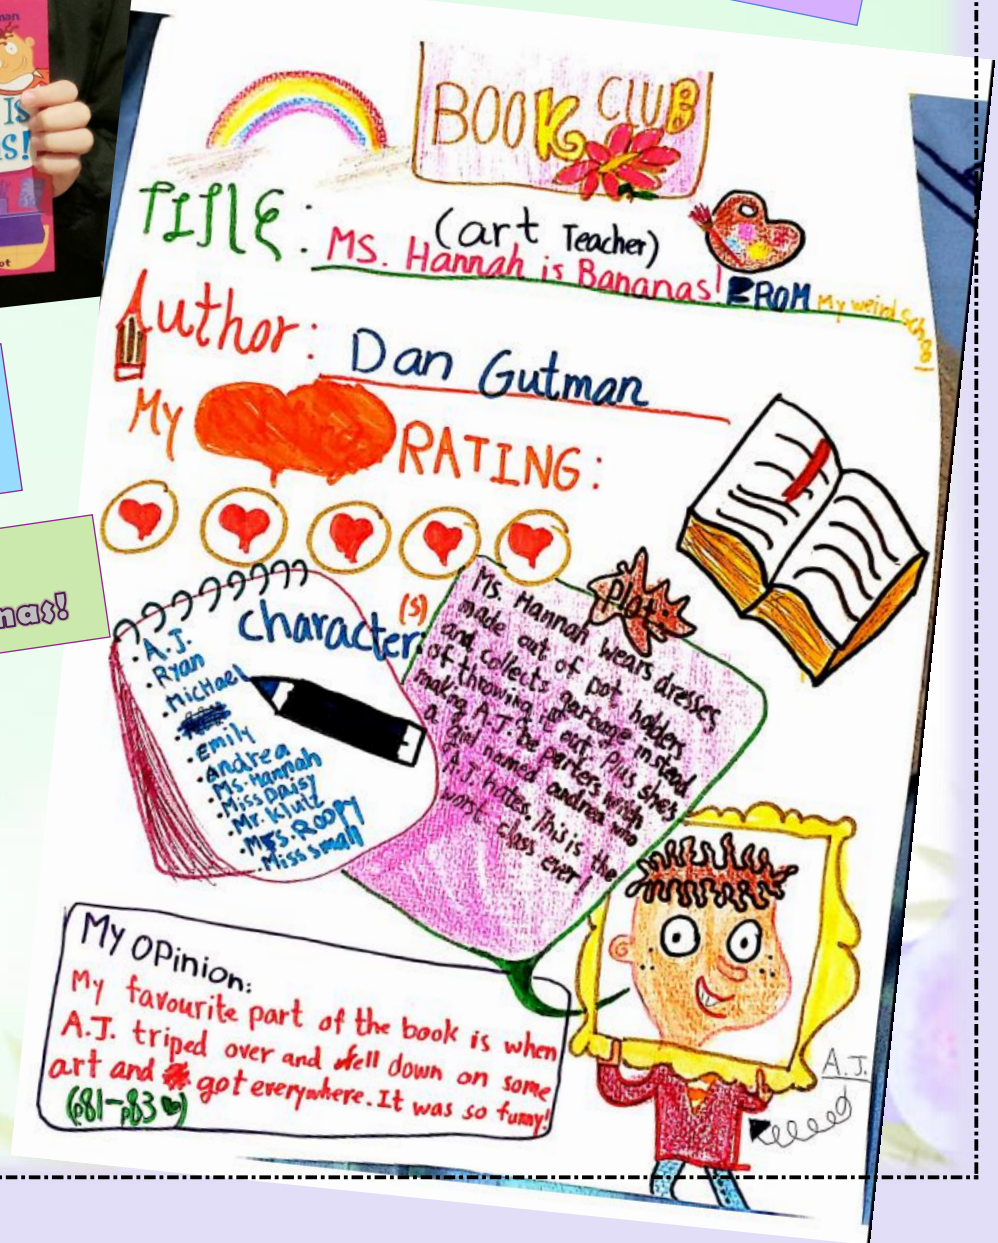 man
IS
S!
ot
nas!
BOOK CLUB
TITlE: (art Teacher)
MS. Hannah is Bananas! FROM My weird School
Author: Dan Gutman
My RATING:
character(s):
. A.J.
. Ryan
. MicHael
. emily
. andrea
. Ms. Hannah
. Miss Daisy
. Mr. Klutz
. MrS. ROOPY
. Miss small
Plot:
Ms. Hannah wears dresses
made out of pot holders
and collects garbage instead
of throwing it out. Plus she's
making A.J. be parters with
a girl named andrea who
A.J. hates. This is the
worst class ever!
My OPinion:
My favourite part of the book is when
A.J. triped over and fell down on some
art and got everywhere. It was so funny!
(p81-p83)
A.J.